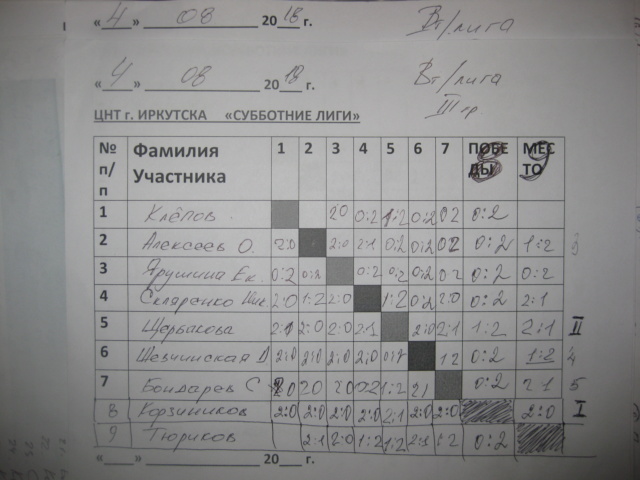 « 4 » 08 20 18 г. Вт/лига
« 4 » 08 20 18 г. Вт/лига
III гр
ЦНТ г. ИРКУТСКА «СУББОТНИЕ ЛИГИ»
№ п/п Фамилия Участника 1 2 3 4 5 6 7 8 9
1 Клёпов 20 0:2 1:2 0:2 02 0:2
2 Алексеев О. 2:0 2:0 2:1 0:2 0:2 02 0:2 1:2 3
3 Ярушина Ек. 0:2 0:2 0:2 0:2 0:2 02 0:2 0:2
4 Скляренко 2:0 1:2 2:0 1:2 0:2 2:0 0:2 2:1
5 Щербакова 2:1 2:0 2:0 2:1 2:0 2:1 1:2 2:1 II
6 Шевчинская Д 2:0 2:0 2:0 2:0 12 0:2 1:2 4
7 Бондарев С 20 20 1:2 21 0:2 21 5
8 Корзинников 2:0 2:0 2:0 2:0 2:1 2:0 2:0 2:0 I
9 Тюриков 2:1 2:0 1:2 1:2 2:1 1:2 0:2
«___» ______________ 20___ г.